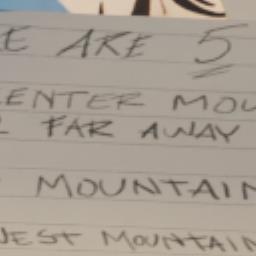 E ARE 5
ENTER MOU
FAR AWAY
MOUNTAIN
EST MOUNTAIN